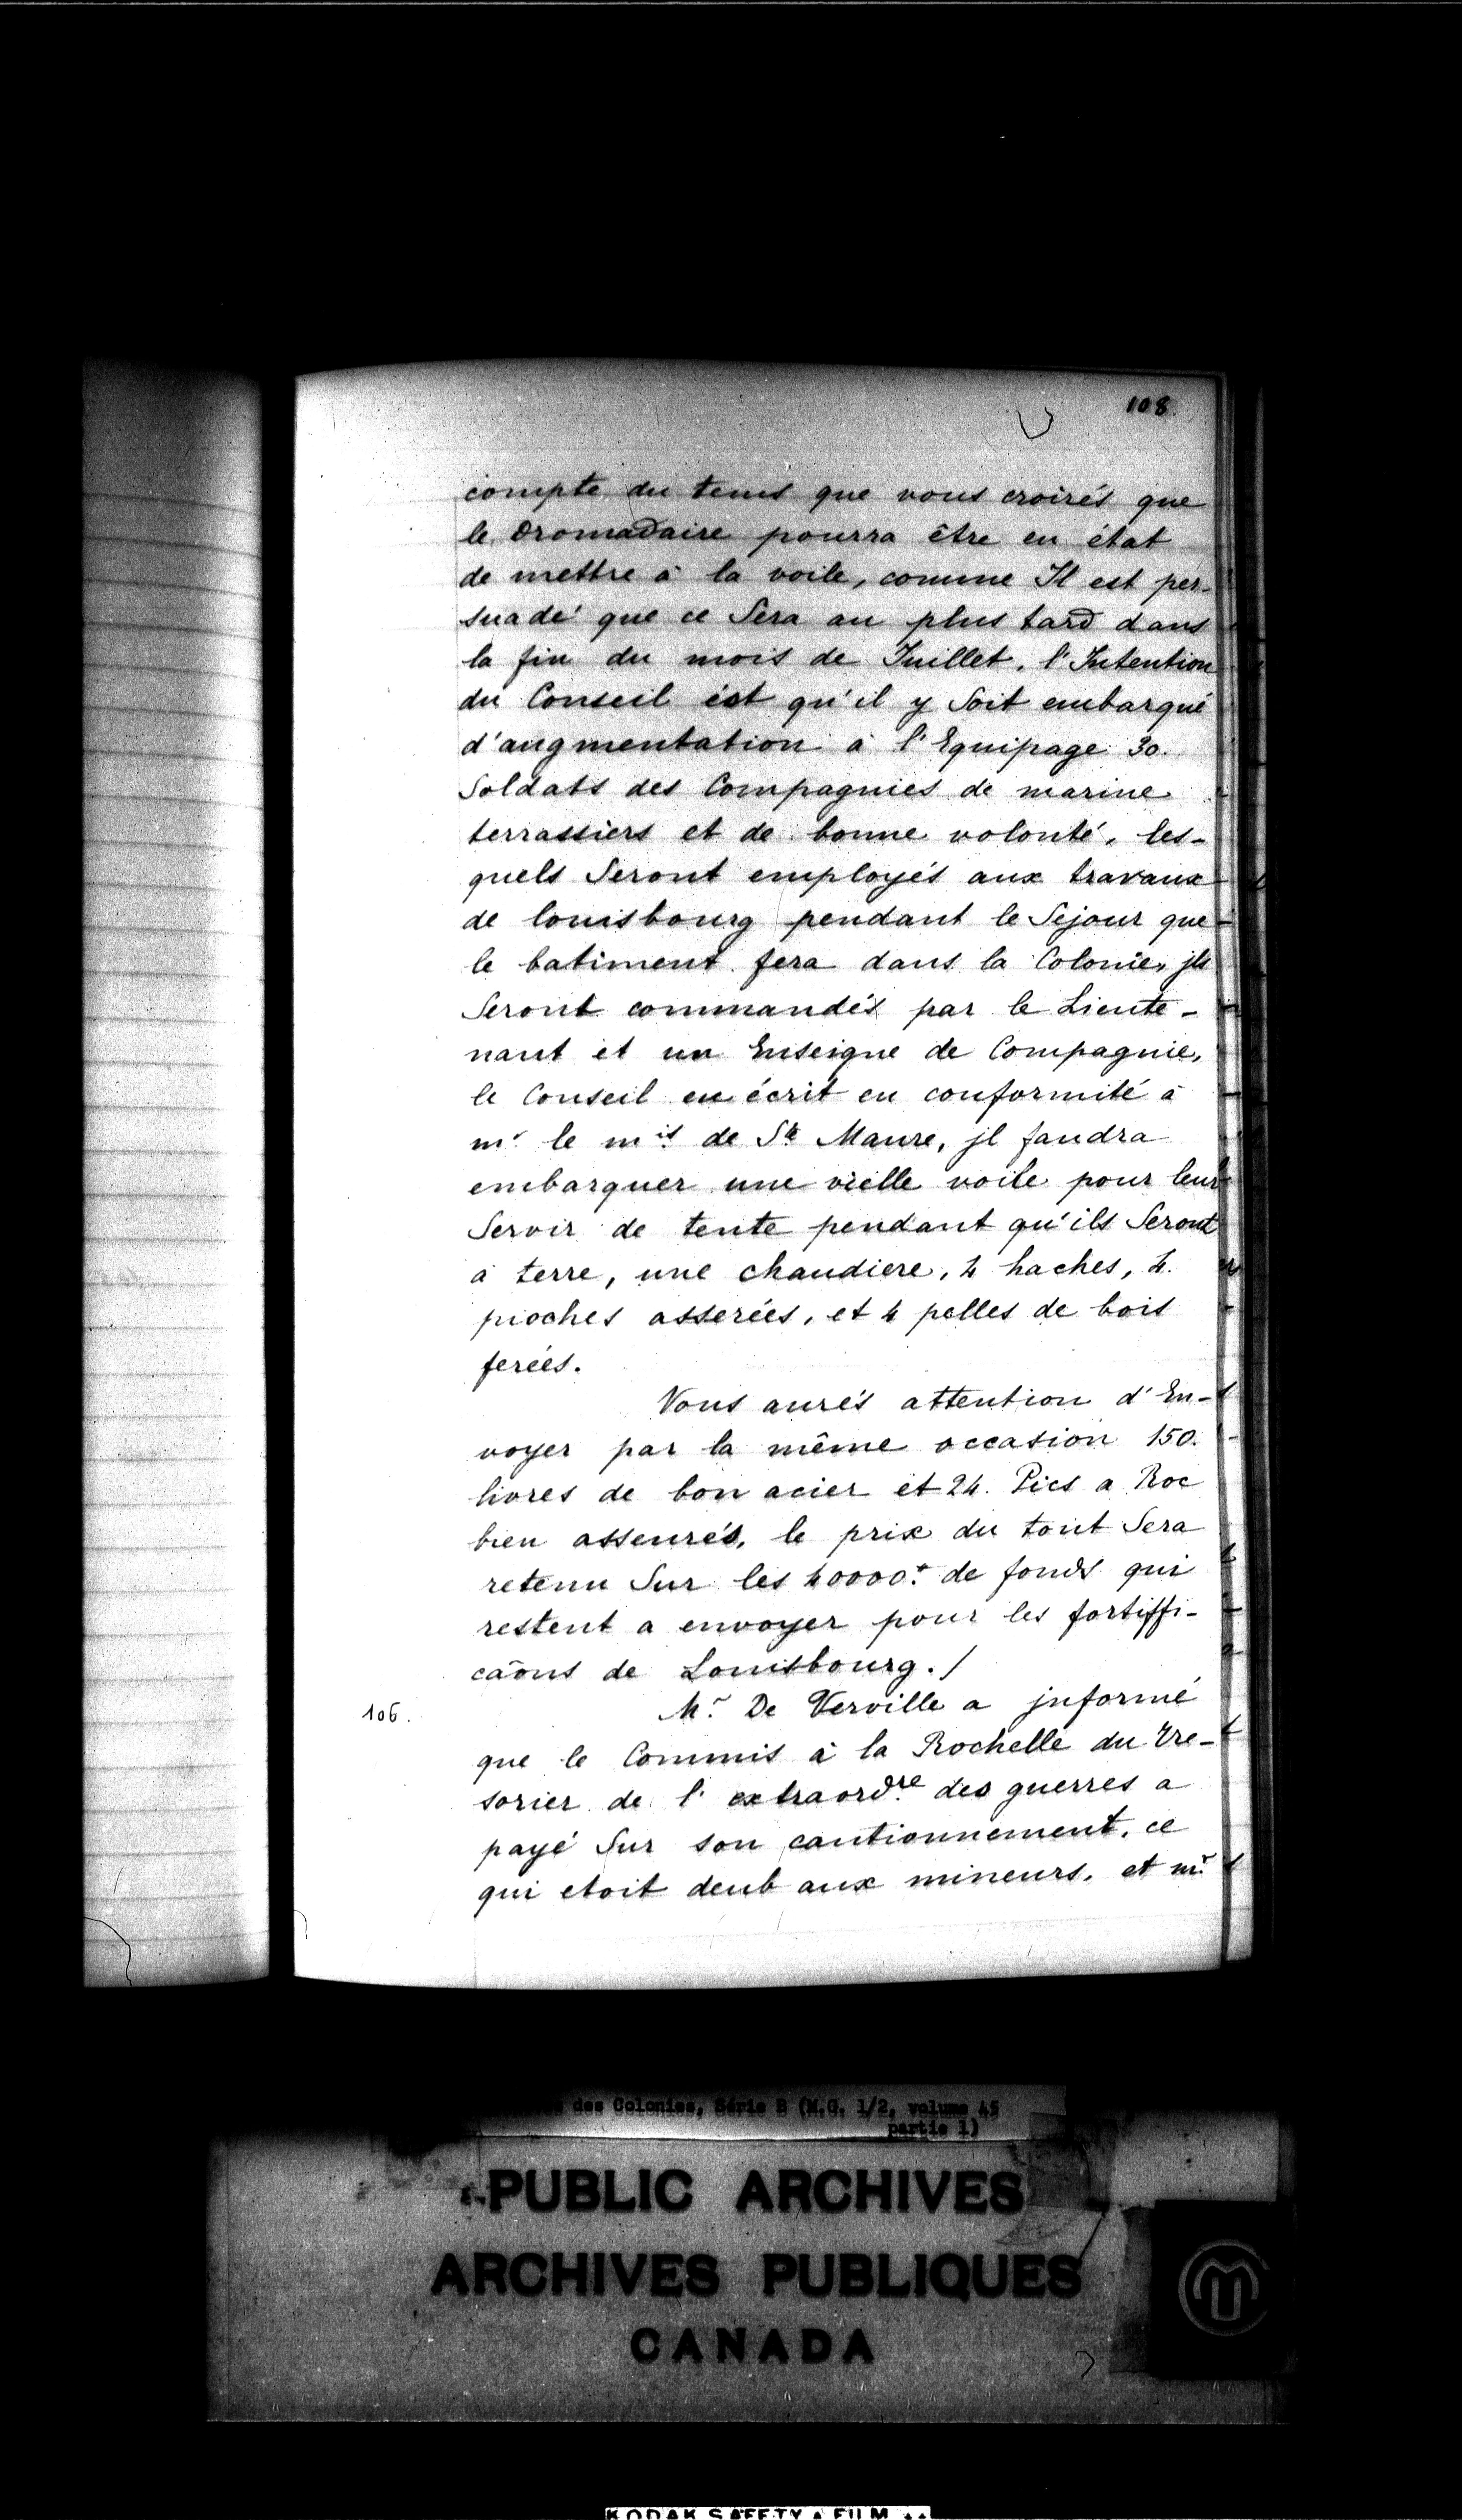 108
compte du tems que vous croirés que
le Dromadaire pourra être en état
de mettre à la voile, comme Il est per-
suadé que ce Sera au plus tard dans
la fin du mois de Juillet, l'Intention
du Conseil est qu'il y Soit embarqué
d'augmentation à l'Equipage 30.
Soldats des Compagnies de marine
terrassiers et de bonne volonté, les-
quels Seront employés aux travaux
de louisbourg pendant le Sejour que
le batiment fera dans la Colonie, jls
Seront commandés par le Lieute-
nant et un Enseigne de Compagnie,
le Conseil en écrit en conformité à
mr. le mis. de Ste Maure, jl faudra
embarquer une vielle voile pour leur
Servir de tente pendant qu'ils Seront
à terre, une chaudiere, 4 haches, 4.
pioches asserées, et 4 pelles de bois
ferées.
Vous aurés attention d'En-
voyer par la même occasion 150.
livres de bon acier et 24. Pics a Roc
bien asseurés, le prix du tout Sera
retenu Sur les 40000.+ de fonds qui
restent a envoyer pour les fortiffi-
cãons de Louisbourg./
106.
Mr. De Verville a jnformé
que le Commis à la Rochelle du Tre-
sorier de l'extraordre. des guerres a
payé Sur son cautionnement, ce
qui etoit deub aux mineurs, et mr.
des Colonies, Série B (M.G. 1/2, volume 45
partie 1)
PUBLIC ARCHIVES
ARCHIVES PUBLIQUES
CANADA
KODAK SAFETY FILM